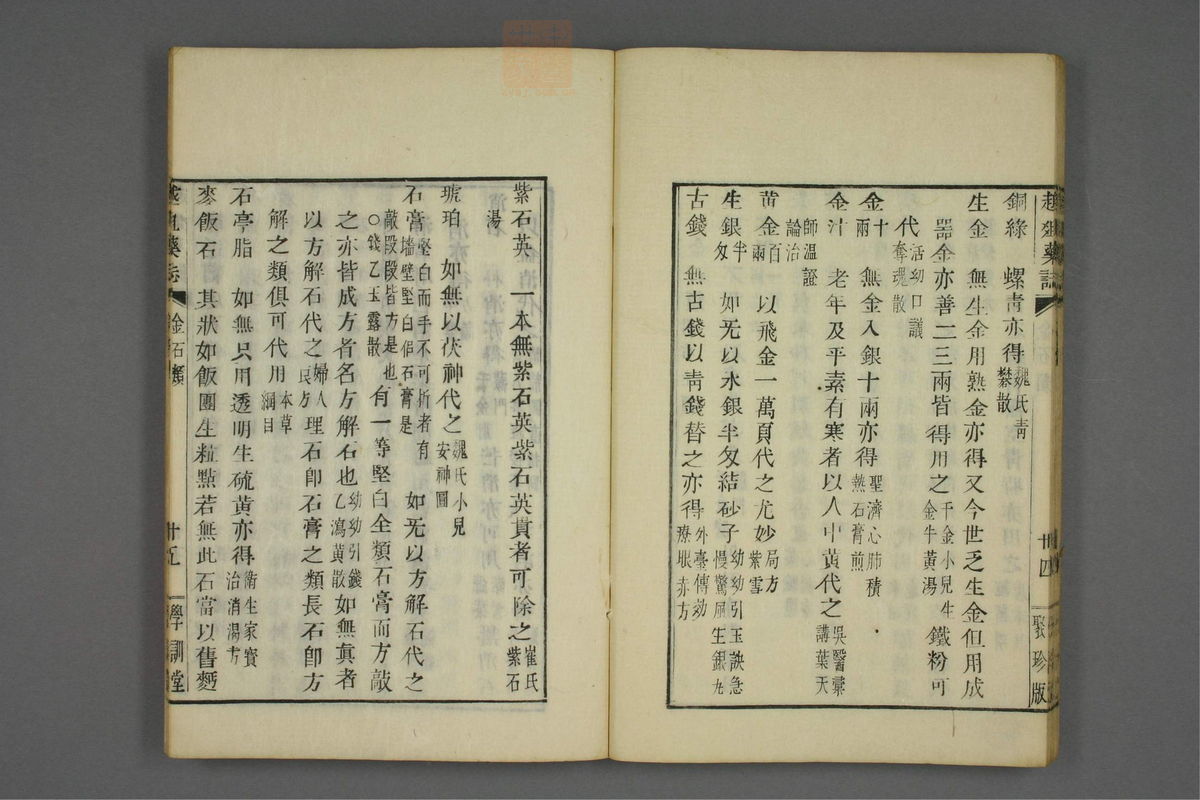 銅綠　螺青亦得魏氏靑礬散
生金　無生金用熟金亦得又今世乏生金但用成
器金亦善二三兩皆得用之千金小兒生金牛黃湯鐵粉可
代活幼口議奪魂散
金十兩　無金入銀十兩亦得聖濟心肺積熱石膏煎
金汁　老年及平素有寒者以人中黃代之吳醫彙講葉天
師温證論治
黃金百兩　以飛金一萬頁代之尤妙局方紫雪
生銀半匁　如旡以水銀半匁結砂子幼幼引玉訣急慢驚風生銀丸
古錢　無古錢以靑錢替之亦得外臺傳効療眼赤方
廿四
聚珍版
紫石英　一本無紫石英紫石英貴者可除之崔氏紫石
湯
琥珀　如無以茯神代之魏氏小兒安神圓
石膏堅白而手不可折者有墻壁堅白佀石膏是　如旡以方解石代之
敲段段皆方是也○錢乙玉露散　有一等堅白全類石膏而方敲
之亦皆成方者名方解石也幼幼引錢乙瀉黃散如無眞者
以方解石代之婦人良方理石卽石膏之類長石卽方
解之類俱可代用本草綱目
石亭脂　如無只用透明生硫黃亦得衛生家寶治消湯方
麥飯石　其狀如飯團生粒點若無此石當以舊麪
金石類
廿五
學訓堂